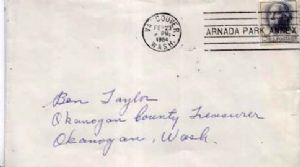 VANCOUVER,
FEB 23
PM
1964
WASH.
ARNADA PARK ANNEX
Ben Taylor
Okanogan County Treasurer
Okanogan, Wash.